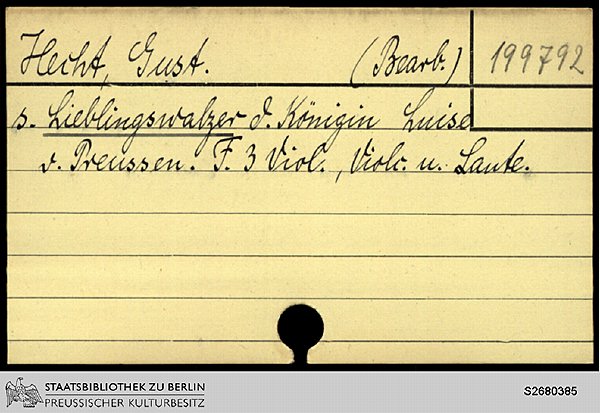 Hecht, Gust. (Bearb.) 199792
s. Lieblingswalzer d. Königin Luise
v. Preussen. F. 3 Viol., Violc. u. Laute.
STAATSBIBLIOTHEK ZU BERLIN
PREUSSISCHER KULTURBESITZ
S2680385